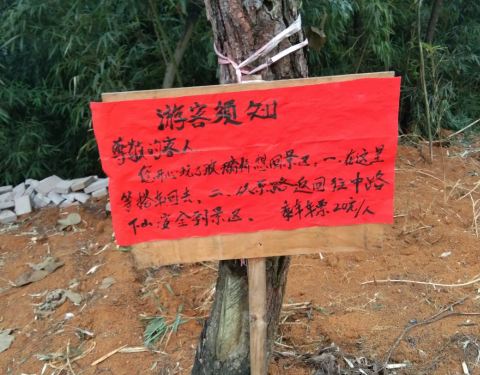 游客须知
尊敬的客人
您开心玩了玻璃桥想回景区，一、在这里
等搭车回去、二、从原路返回往中路
下山安全到景区。 乘车车票20元/人